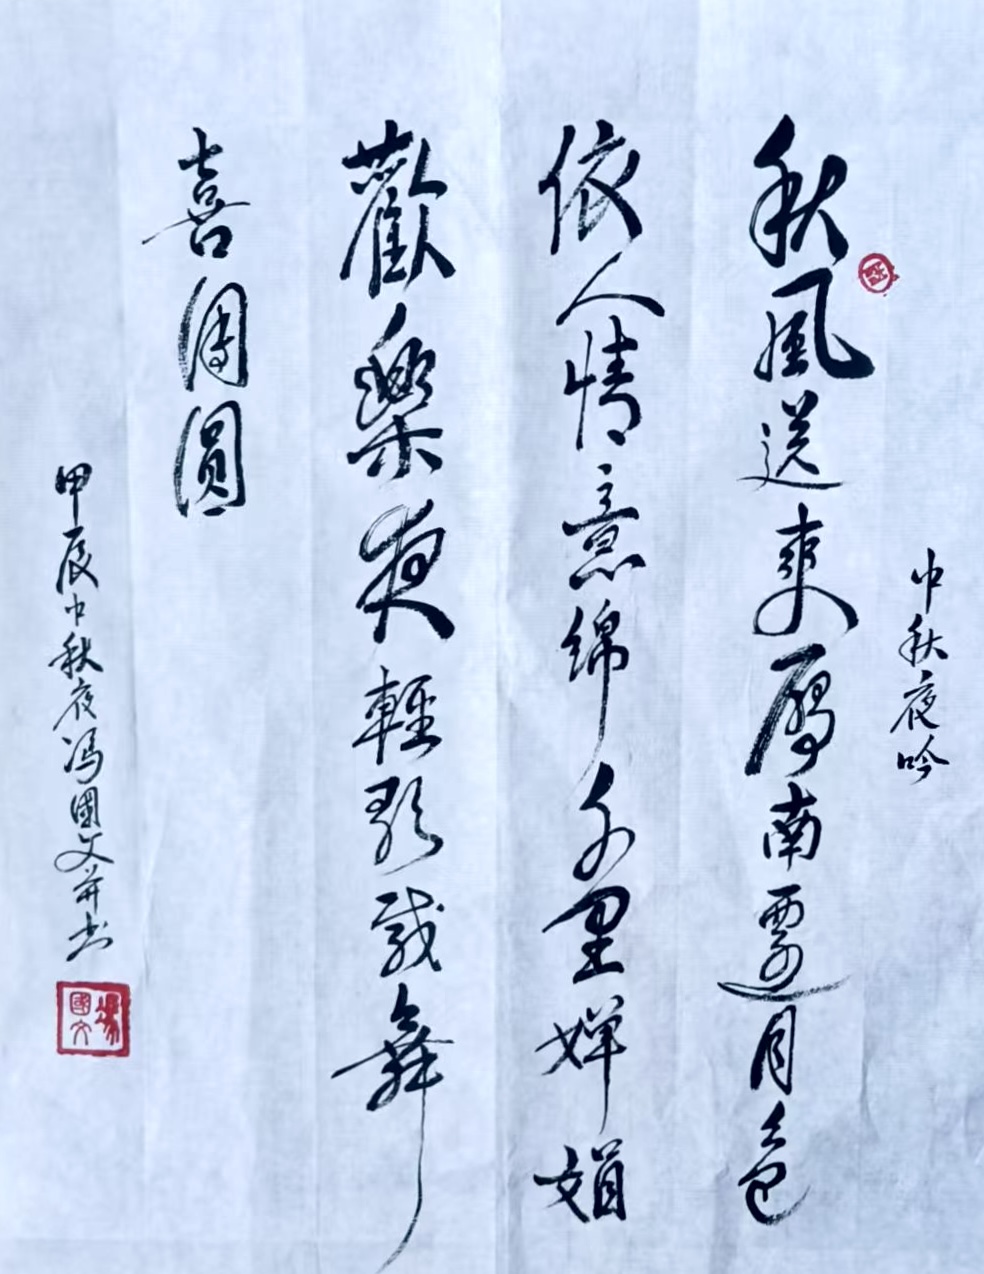 中秋夜吟
秋風送爽雁南遷月色
依人情意綿千里嬋娟
歡樂夜輕歌戟舞
喜團圓
甲辰中秋夜冯國文并书
冯國文